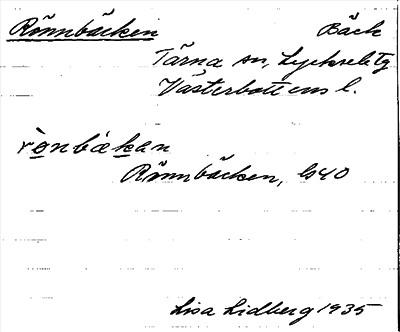 Rönnbäcken Bäck
Tärna sn, Lycksele tg
Västerbottens l.
rönbækan
Rönnbäcken, G40
Lisa Lidberg 1935